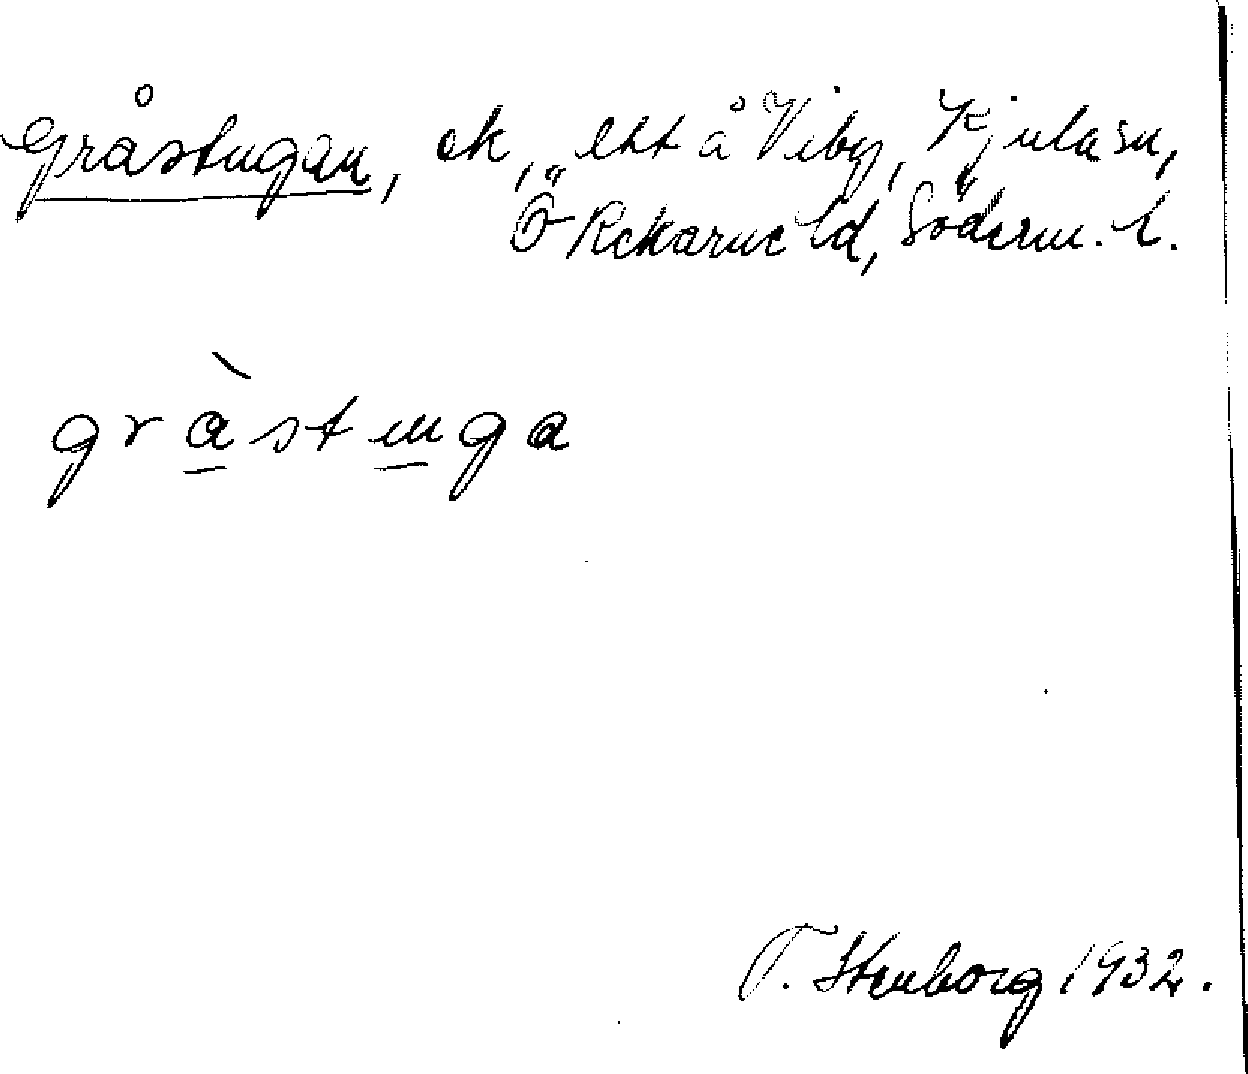 Gråstugan, ek, ett å Viby, Kjula sn,
Ö Rekarne hd, Söderm. l.
gràstuga
T. Stenborg 1932.